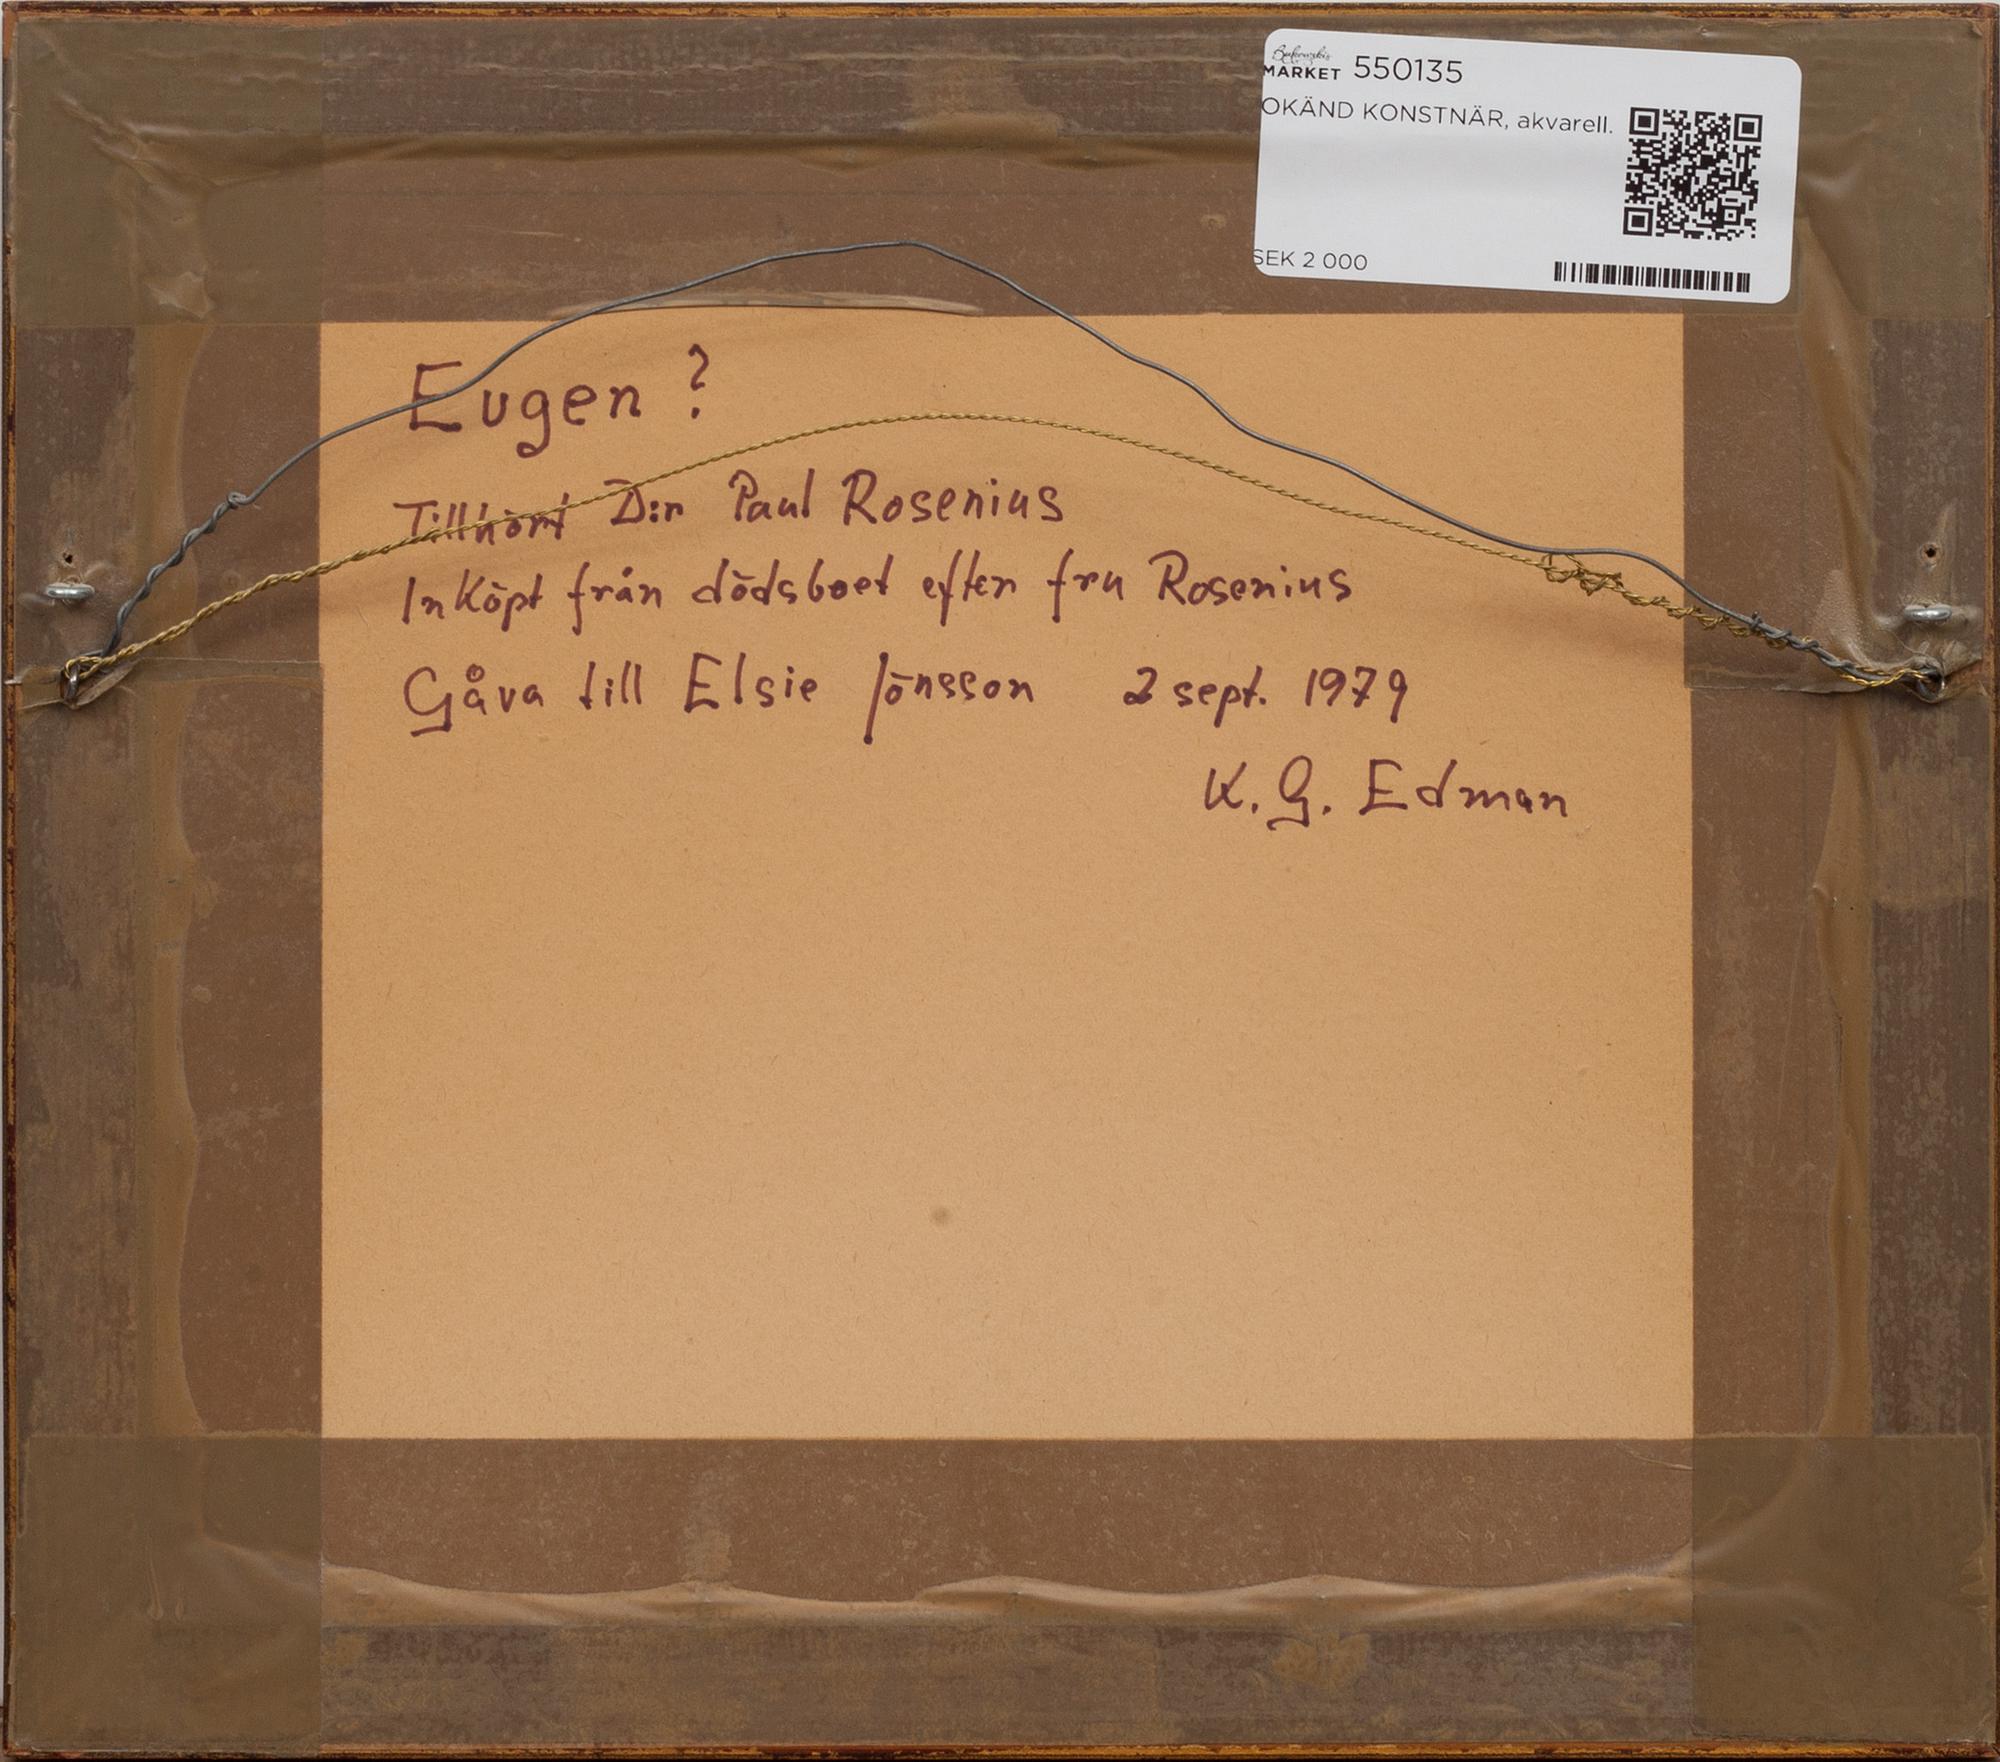 Bukowskis
MARKET 550135
OKÄND KONSTNÄR, akvarell.
SEK 2 000
Eugen ?
Tillhört D:r Paul Rosenius
Inköpt från dödsboet efter fru Rosenius
Gåva till Elsie Jönsson 2 sept. 1979
K. G. Edman